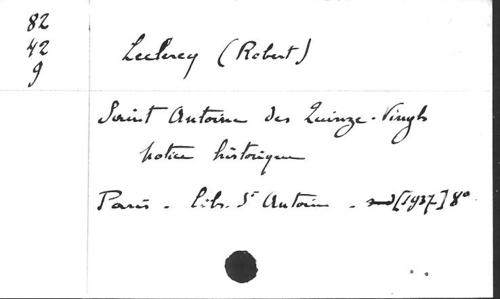 82
42
9
Leclercq (Robert)
Saint Antoine des Quinze-Vingts
Notice historique
Paris - lib. St Antoine - [1937] 8°